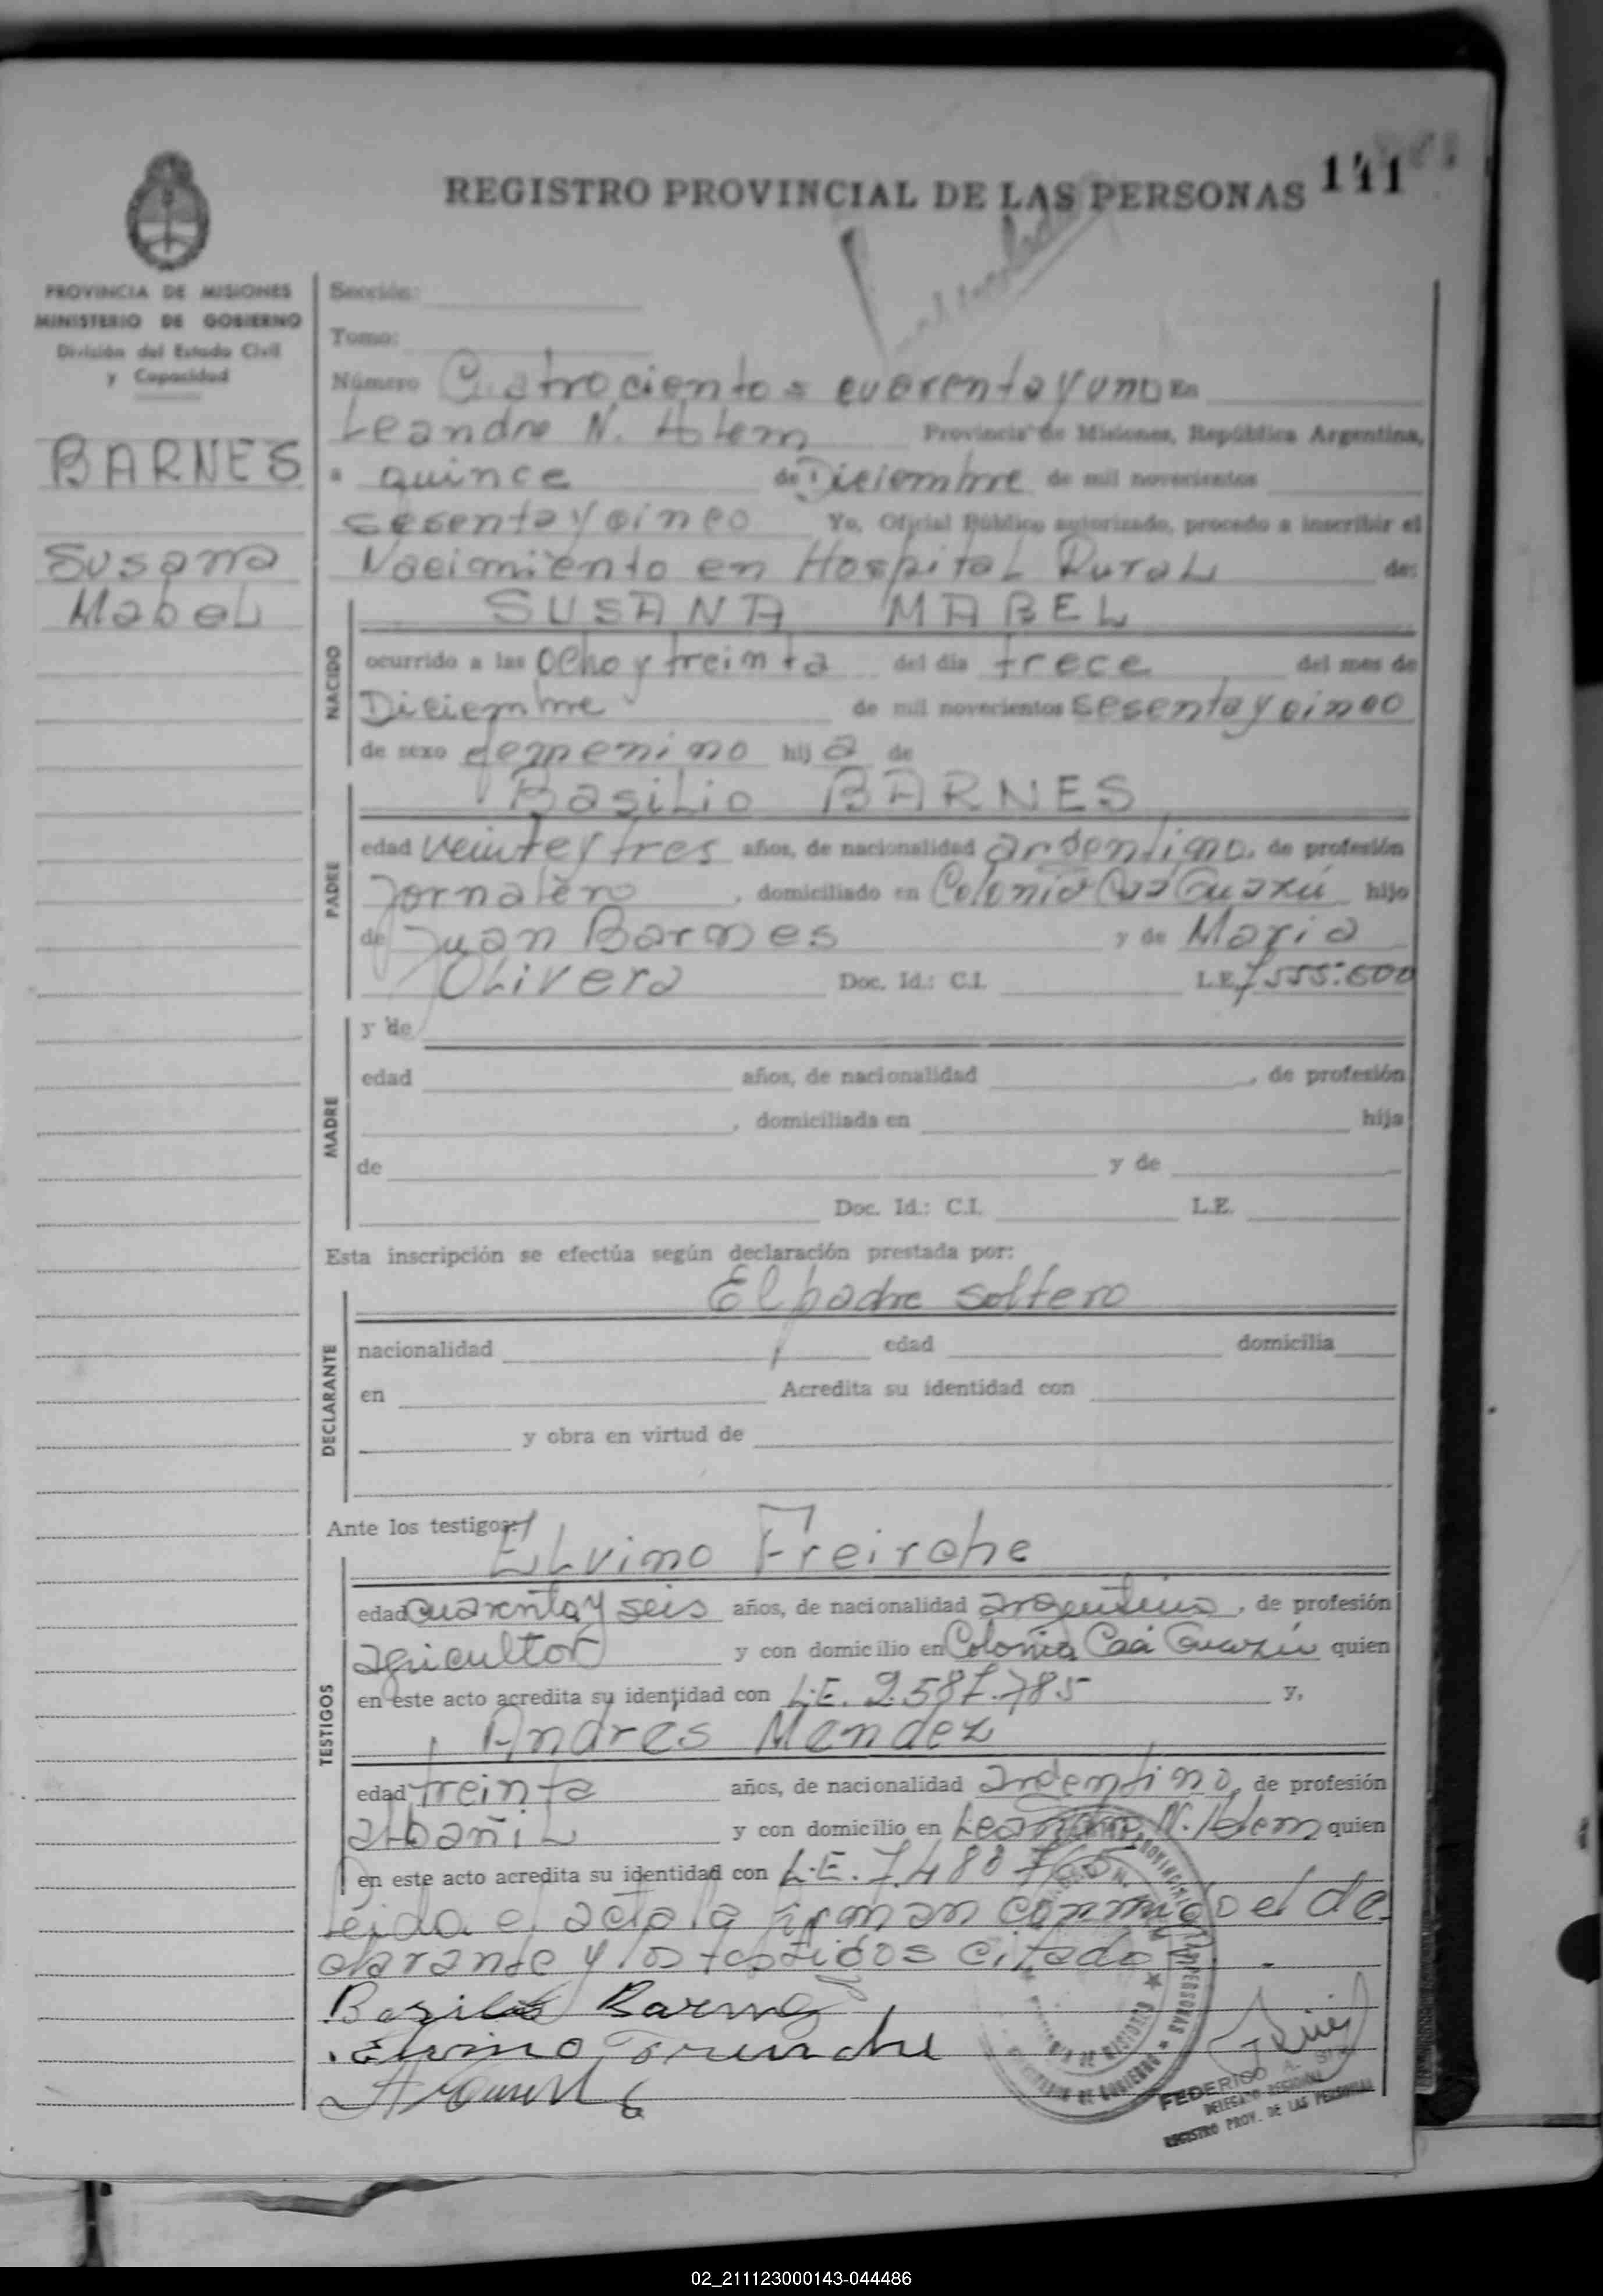 REGISTRO PROVINCIAL DE LAS PERSONAS
PROVINCIA DE MISIONES
MINISTERIO DE GOBIERNO
División del Estado Civil
y Capacidad
BARNES
Susana
Mabel
Sección:
Tomo:
Número Cuatrocientos cuarenta y uno En
Leandro N. Alem Provincia de Misiones, República Argentina,
a quince de Diciembre de mil novecientos
sesenta y cinco Yo, Oficial Público autorizado, procedo a inscribir el
Nacimiento en Hospital Rural de:
NACIDO
SUSANA MABEL
ocurrido a las Ocho y treinta del día trece del mes de
Diciembre de mil novecientos sesenta y cinco
de sexo femenino hija de
PADRE
Basilio BARNES
edad veinte y tres años, de nacionalidad argentino, de profesión
Jornalero, domiciliado en Colonia Caá Guazú hijo
de Juan Barnes y de Maria
Olivera Doc. Id.: C.I. L.E. 7.555.600
MADRE
y de
edad años, de nacionalidad , de profesión
, domiciliada en hija
de y de
Doc. Id.: C.I. L.E.
Esta inscripción se efectúa según declaración prestada por:
DECLARANTE
El padre soltero
nacionalidad edad domicilia
en Acredita su identidad con
y obra en virtud de
Ante los testigos:
TESTIGOS
Elvino Freirche
edad cuarenta y seis años, de nacionalidad argentino, de profesión
agricultor y con domicilio en Colonia Caá Guazú quien
en este acto acredita su identidad con L.E. 2.587.785 y,
Andres Mendez
edad treinta años, de nacionalidad argentino, de profesión
albañil y con domicilio en Leandro N. Alem quien
en este acto acredita su identidad con L.E. 7.480
Leida el acta la firman conmigo el de
clarante y los testigos citados.
Basilio Barnes
Elvino
FEDERICO A.
DELEGADO REGIONAL
REGISTRO PROV. DE LAS PERSONAS
02_211123000143-044486